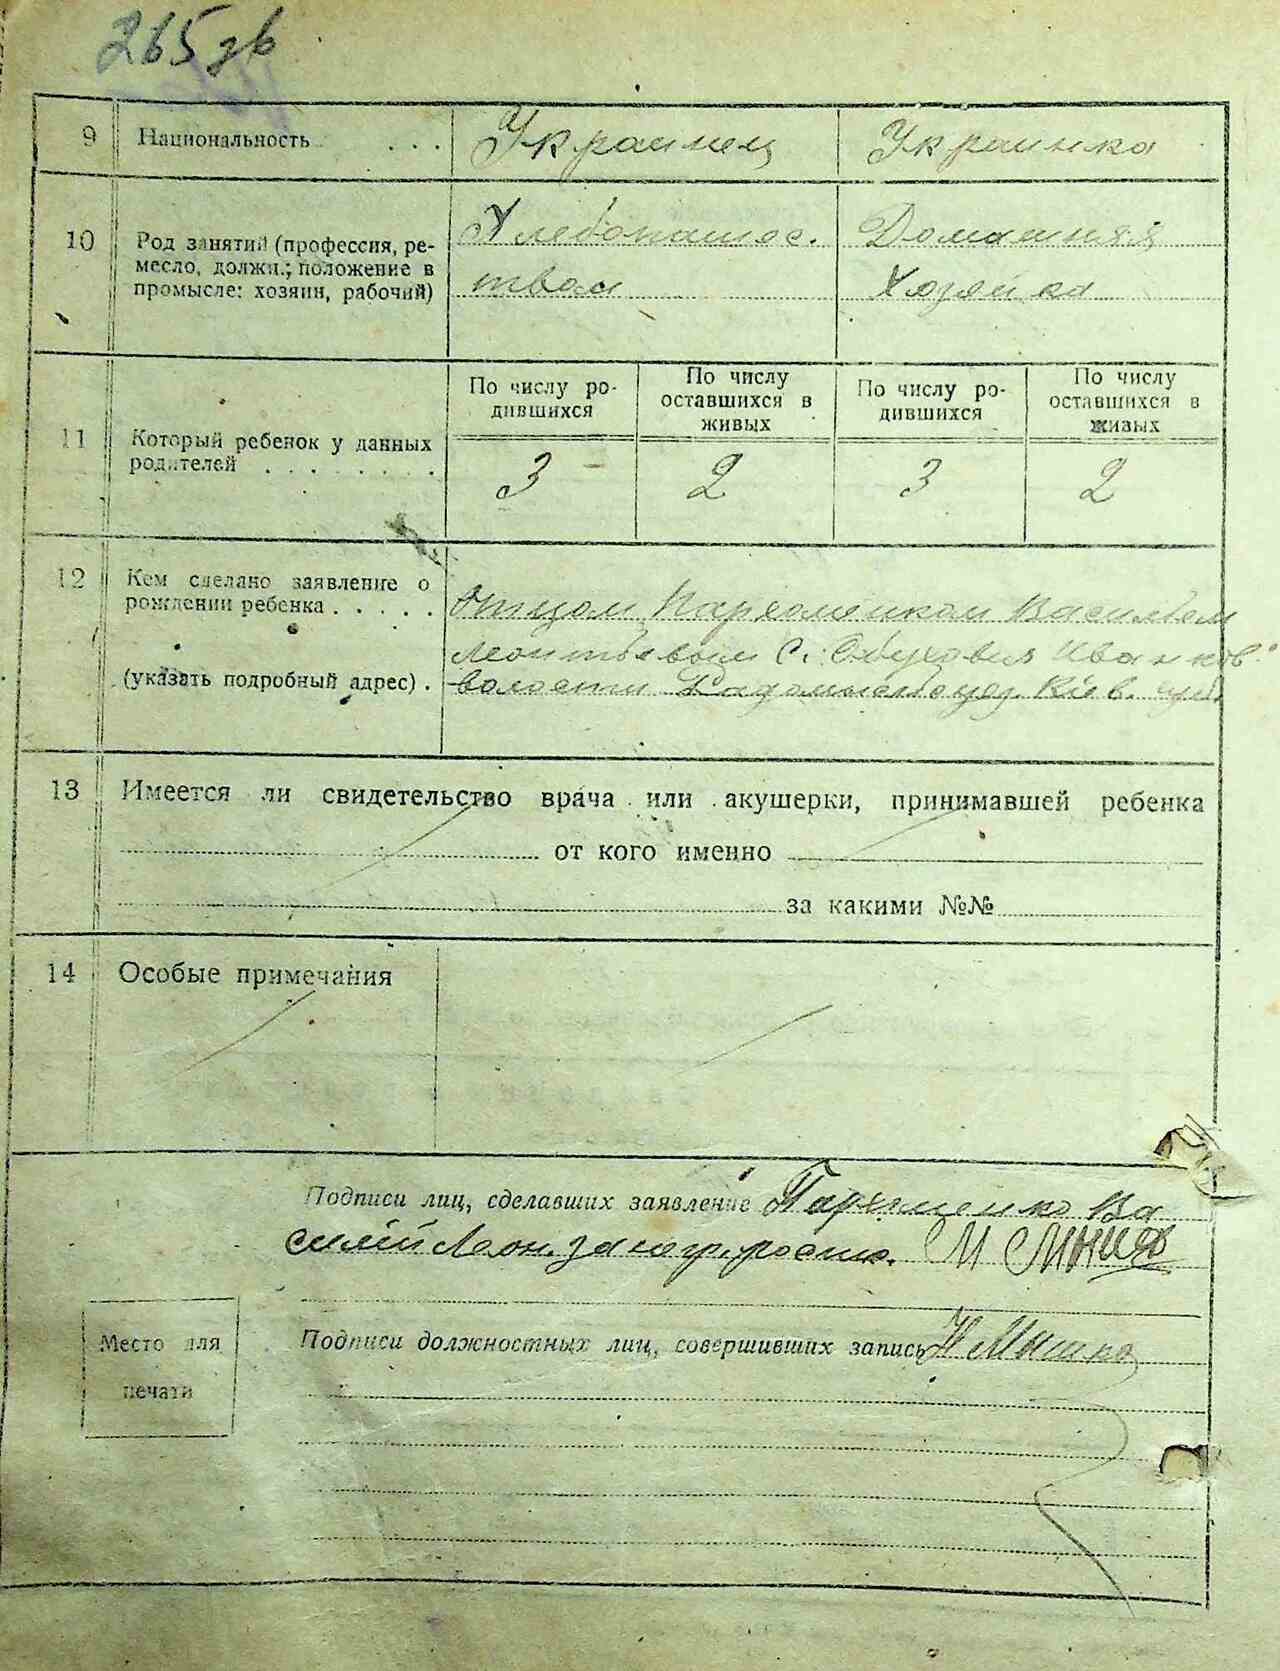 265 зв
9 Национальность . . . Украинец Украинка
10 Род занятий (профессия, ре- Хлебопашес. Домашняя
месло, должн.; положение в
промысле: хозяин, рабочий) твом Хозяйка
По числу ро- По числу По числу ро- По числу
дившихся оставшихся в дившихся оставшихся в
живых живых
11 Который ребенок у данных
родителей . . . . . . . 3 2 3 2
12 Кем сделано заявление о
рождении ребенка . . . . . Отцом Пархоменком Василием
Леонтьевым С. Обуховичи Иванков.
(указать подробный адрес) . волости Радомысл уез. Кіев. губ.
13 Имеется ли свидетельство врача или акушерки, принимавшей ребенка
от кого именно
за какими №№
14 Особые примечания
Подписи лиц, сделавших заявление Пархоменко Ва
силій Леон. за негр. роспис.
Место для Подписи должностных лиц, совершивших запись
печати